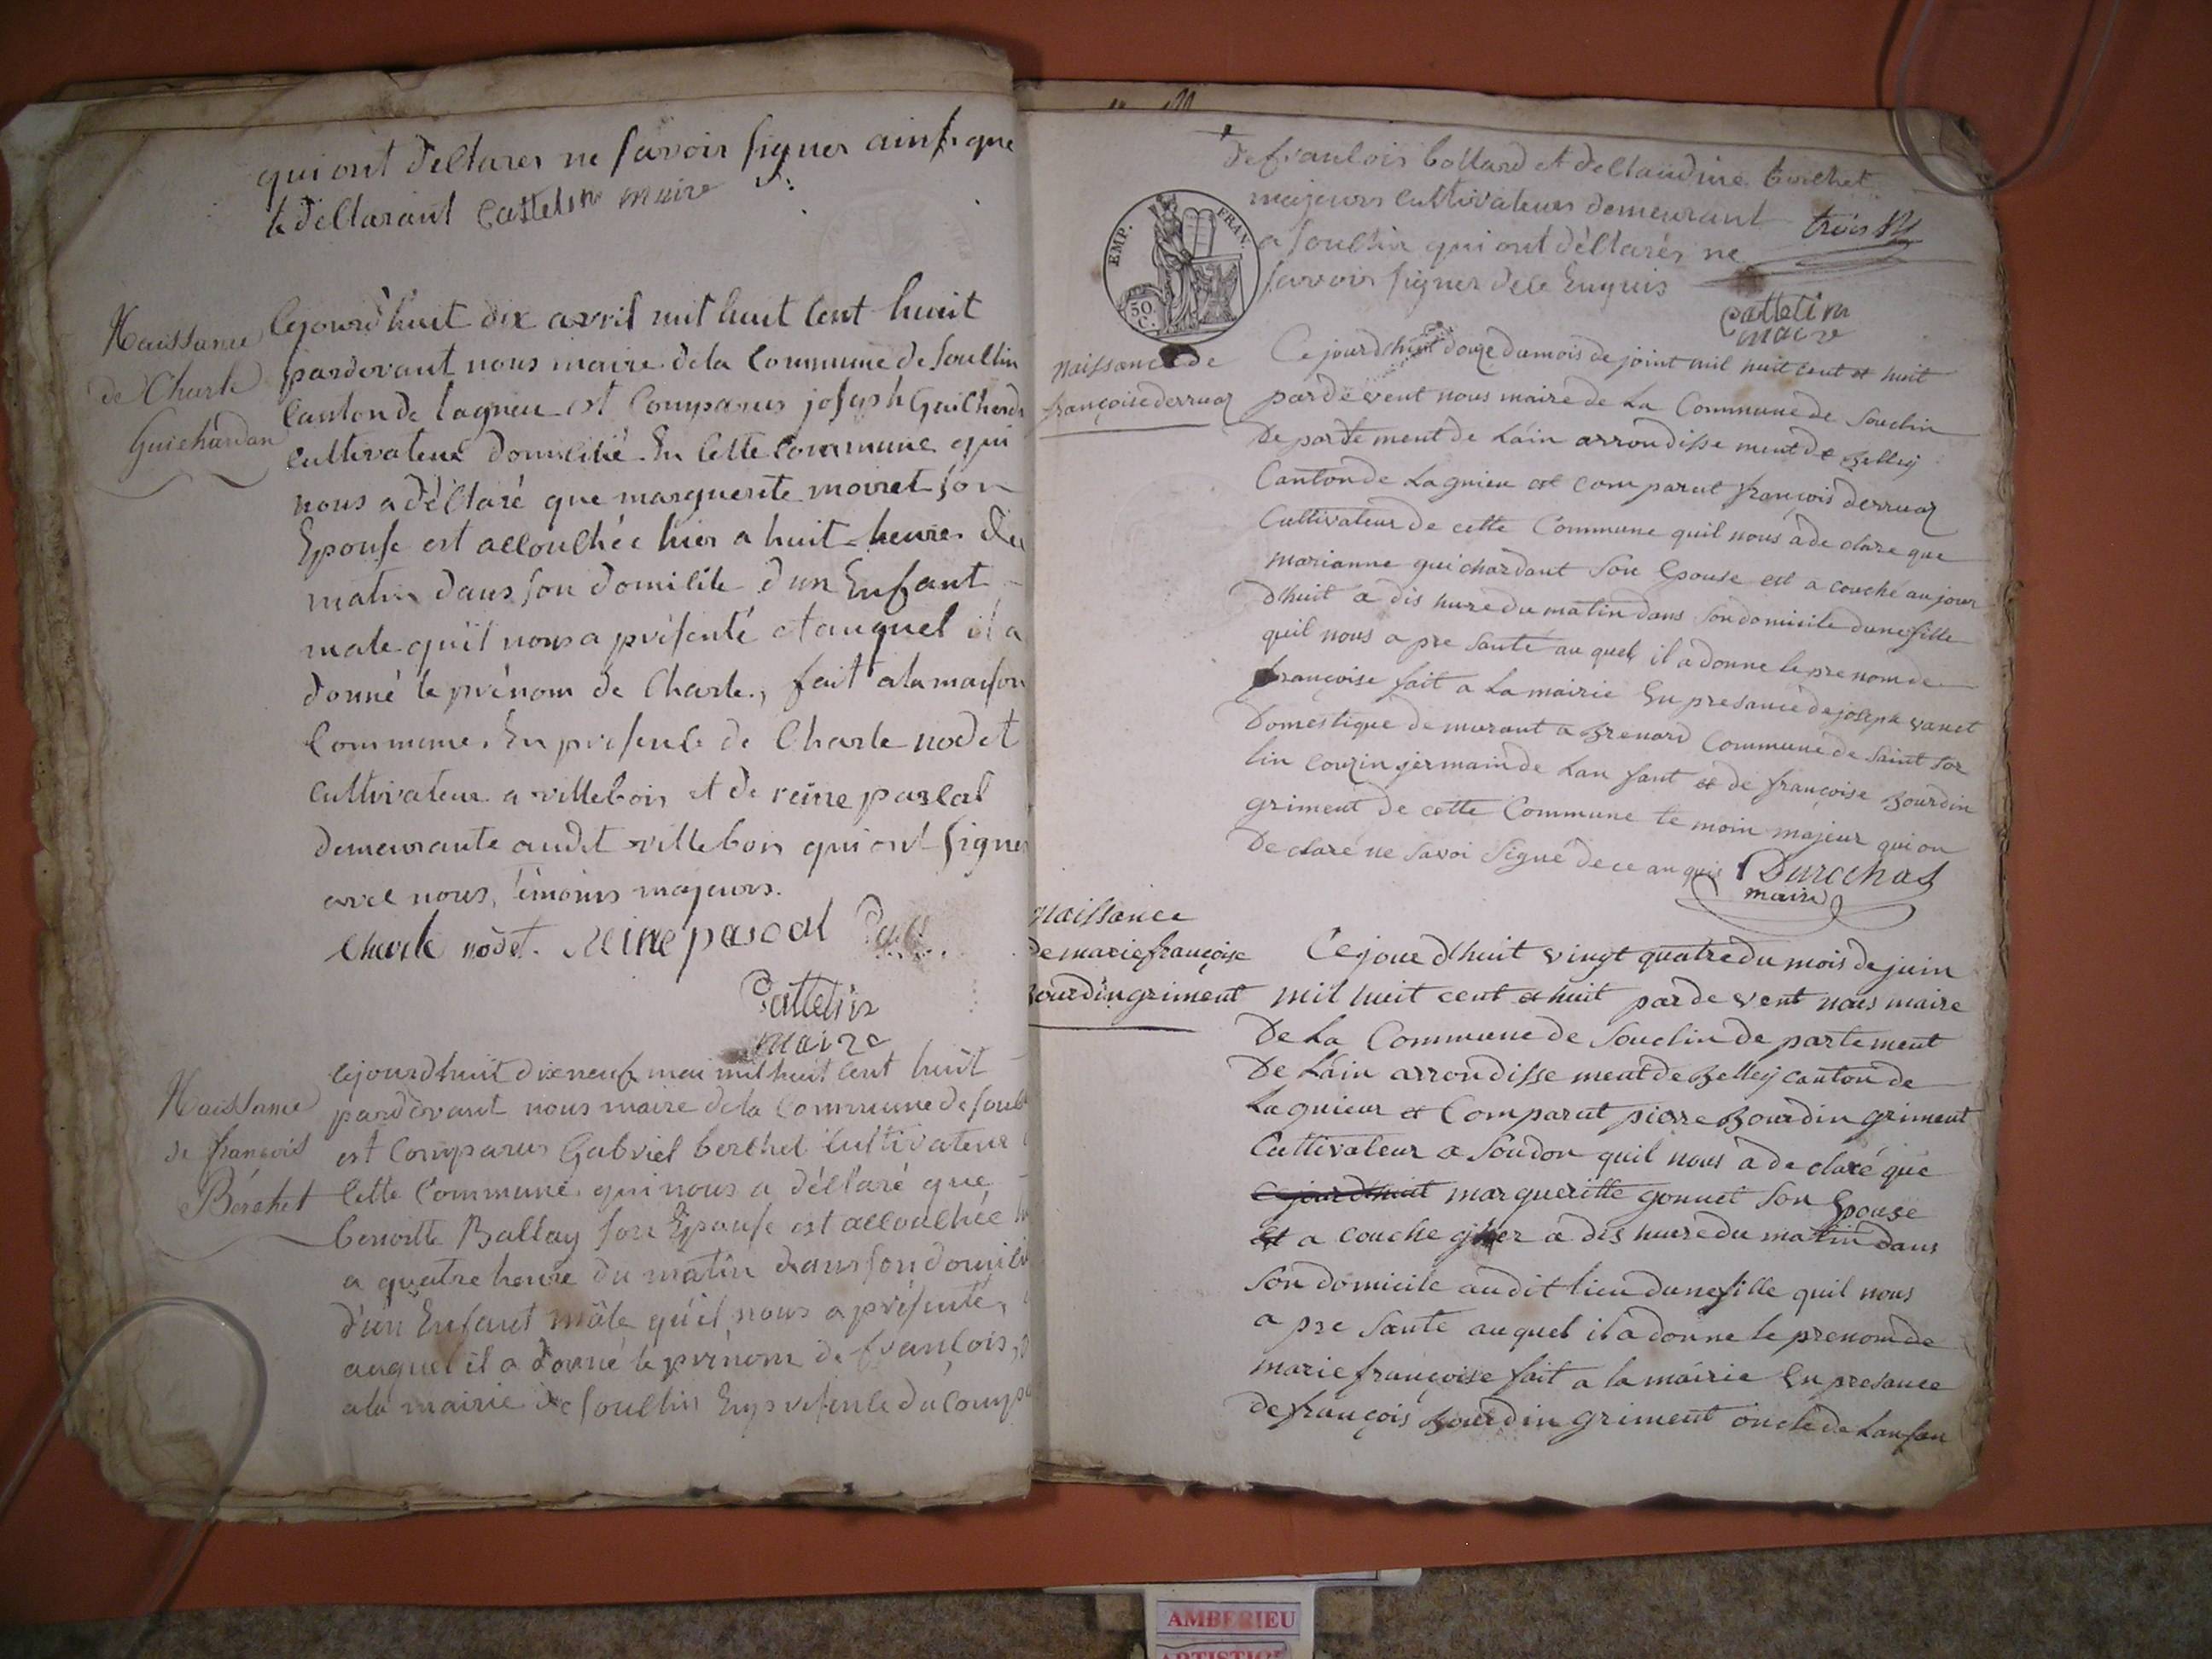 qui ont déclarés ne savoir signer ainsi que
le déclarant Cattelin maire
Naissance
de Charle
Guichardan
Cejourd'huit dix avril mil huit cent huit
pardevant nous maire de la Commune de Souclin
Canton de Lagnieu est Comparus joseph Guichard
cultivateur domicilié En Cette Commune qui
nous a déclaré que marguerite moiret son
Epouse est accouchée hier a huit heures du
matin dans son domicile d'un Enfant
male qu'il nous a présenté et auquel il a
donné le prénom de Charle, fait a la maison
Commune, En présence de Charle nodet
Cultivateur a villebois et de reine pascal
demeurante audit villebois qui ont signer
avec nous, témoins majeurs.
Charle nodet. Reine pascal
Cattelin
maire
Naissance
de francois
Bérchet
Cejourdhuit dixneuf mai mil huit cent huit
pardevant nous maire de la Commune de Soucl
est Comparus Gabriel berchet Cultivateur
Cette Commune qui nous a déclaré que
benoitte Ballay son Epouse est accouchée
a quatre heure du matin dans son domicil
d'un Enfant mâle qu'il nous a présenté,
auquel il a donné le prénom de françois,
a la mairie de Souclin En présence du Comp
de francois Collard et de Claudine berchet
majeurs Cultivateurs demeurant
a Souclin qui ont déclarés ne
savoir signer de ce Enquis
trois
Cattelin
maire
EMP. FRAN.
50 C.
naissance de
françoise derruaz
Ce jourdhuit douze du mois de joint mil huit cent et huit
par de vent nous maire de La Commune de Souclin
De partement de Láin arrondisse ment de Belley
Canton de Lagnieu est comparut françois derruaz
Cultivateur de cette Commune quil nous a de clare que
marianne guichardant Son Epouse est a couché au jour
dhuit a dis hure du matin dans Son domicile dune fille
quil nous a pre santé au quel il a donne le pre nom de
françoise fait a La mairie En presance de joseph vanet
Domestique de murant a Brenard Commune de Saint Sor
lin couzin jermain de Lan fant et de françoise Bourdin
griment de cette Commune te moin majeur qui on
De claré ne Savoi Signé de ce an quis Durochat
maire
naissance
de marie françoise
Bourdin griment
Ce jour dhuit vingt quatre du mois de juin
mil huit cent et huit par de vent nous maire
De La Commune de Souclin de partement
De Láin arrondisse ment de Belley canton de
Lagnieur et Comparut pierre Bourdin griment
Cultivateur a Soudon quil nous a de claré que
ce jourdhuit margueritte gonnet Son Epouse
est a couche gier a dis huire du matin dans
Son domicile audit lieu dune fille quil nous
a pre Sante au quel il a donne le prenom de
marie françoise fait a la mairie En presance
de françois Bourdin griment oncle de Lan fan
AMBERIEU
ARTISTIQUE